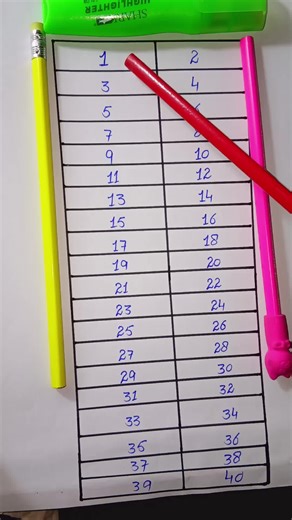 SHARP
HIGHLIGHTER
1 2
3 4
5 6
7 8
9 10
11 12
13 14
15 16
17 18
19 20
21 22
23 24
25 26
27 28
29 30
31 32
33 34
35 36
37 38
39 40